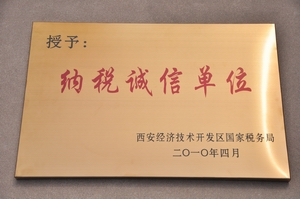 授予：
纳税诚信单位
西安经济技术开发区国家税务局
二〇一〇年四月